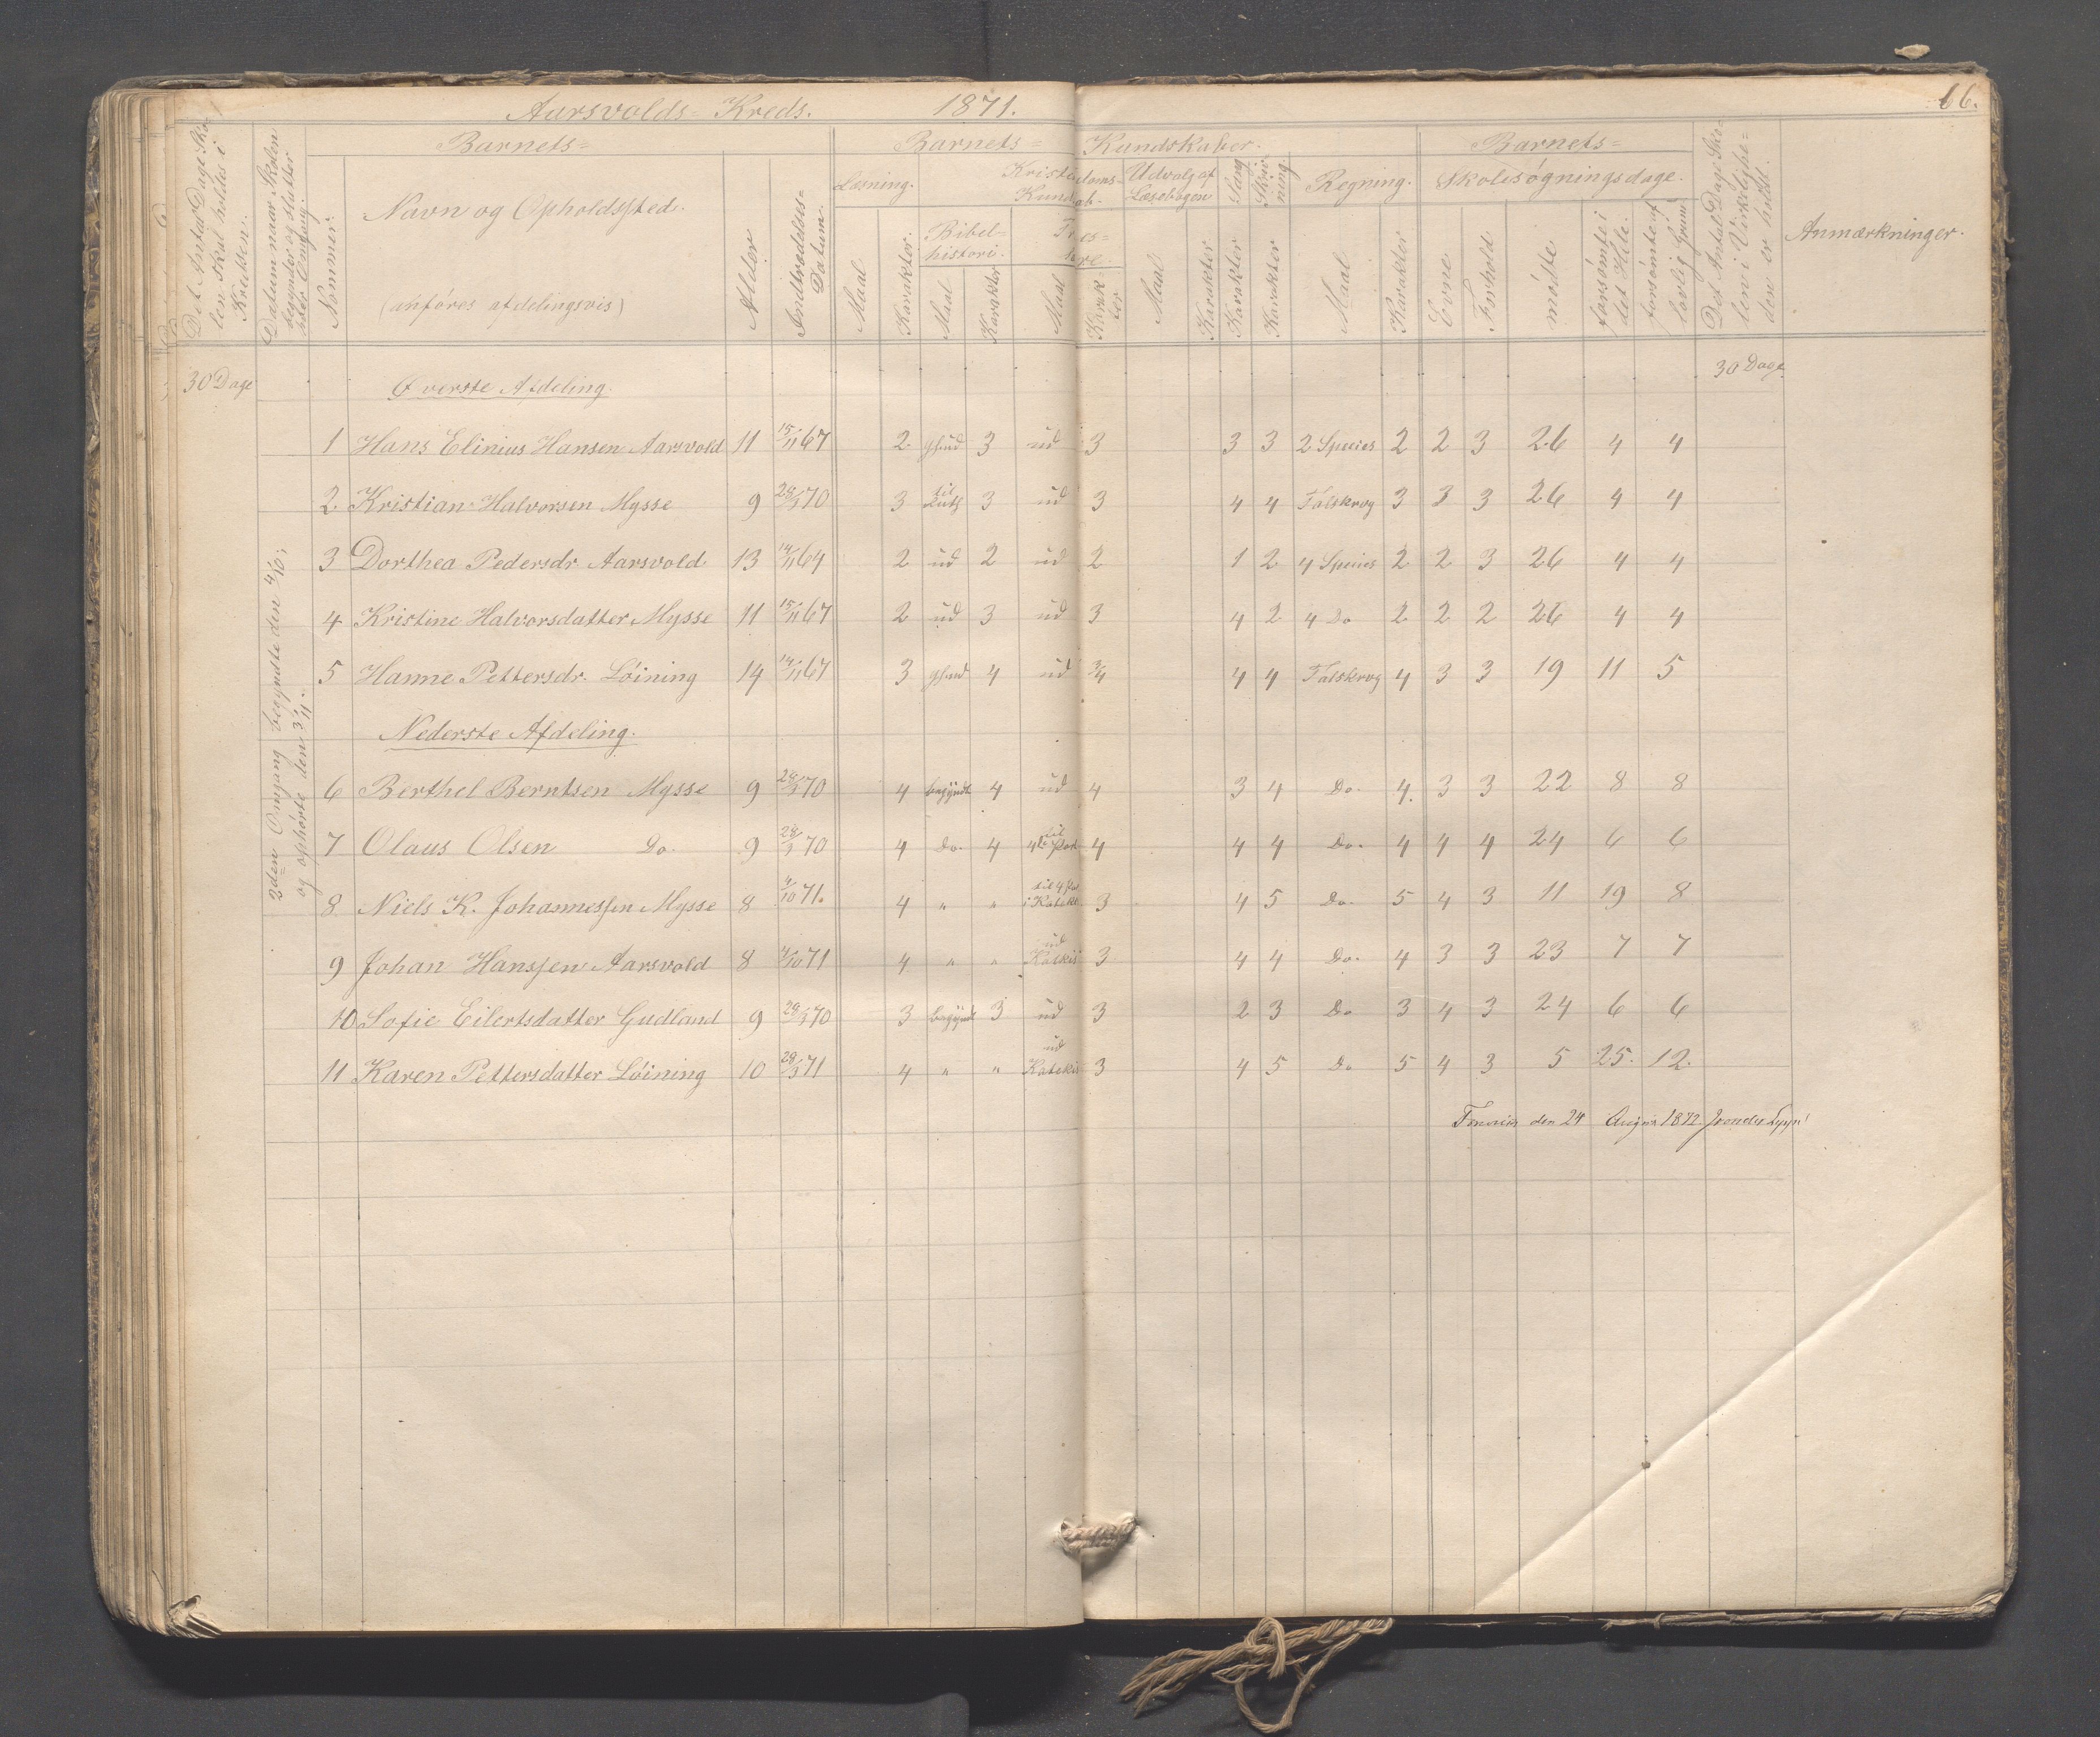 Aarsvolds= Kreds. 1871. 66.
Barnets= Barnets= Kundskaber. Barnets=
Det Antal Dage Skolen skal holdes i Kredsen.
Datum naar Skolen begynder og slutter hver Omgang.
Nommer.
Navn og Opholdssted.
(anføres afdelingsvis)
Alder
Indtrædelses= Datum.
Læsning. Kristendoms= Kundskab. Udvalg af Læsebogen Sang Skrivning. Regning. Skolesøgningsdage.
Bibel= historie. Troes= lære.
Maal Karakter Maal Karakter Maal Karakter Maal Karakter Karakter Karakter Maal Karakter Evne Forhold mødte forsømte i det Hele. forsømte af lovlig Grund
Det Antal Dage Skolen i Virkelighe= den er holdt.
Anmærkninger.
30 Dage Øverste Afdeling. 30 Dage
2den Omgang begyndte den 4/10;
og ophørte den
1 Hans Elinius Hansen Aarsvold 11 15/11 67 2 3 ud 3 3 3 2 Species 2 2 3 26 4 4
2. Kristian Halvorsen Mysse 9 70 3 til Ruth 3 ud 3 4 4 Talskrvg 3 3 3 26 4 4
3 Dorthea Pedersdr Aarsvold 13 14/11 64 2 ud 2 ud 2 1 2 4 Species 2 2 3 26 4 4
4 Kristine Halvorsdatter Mysse 11 15/11 67 2 ud 3 ud 3 4 2 4 Do 2 2 2 26 4 4
5 Hanne Pettersdr. Löining 14 14/11 67 3 4 ud 3/4 4 4 Talskrvg 4 3 3 19 11 5
Nederste Afdeling.
6 Berthel Berntsen Mysse 9 70 4 begyndt 4 ud 4 3 4 Do. 4. 3 3 22 8 8
7 Olaus Olsen Do. 9 70 4 Do. 4 4 4 4 Do. 4 4 4 24 6 6
8 Niels K. Johannessen Mysse 8 4/10 71. 4 " " 3 4 5 Do. 5 4 3 11 19 8
9 Johan Hanssen Aarsvold 8 4/10 71 4 " " ud Katekis 3 4 4 Do. 4 3 3 23 7 7
10 Sofie Eilertsdatter Gudland 9 70 3 begyndt 3 ud 3 2 3 Do 3 4 3 24 6 6
11 Karen Pettersdatter Löining 10 71 4 " " ud Katekis 3 4 5 Do 5 4 3 5 25. 12.
den 24 August 1872.